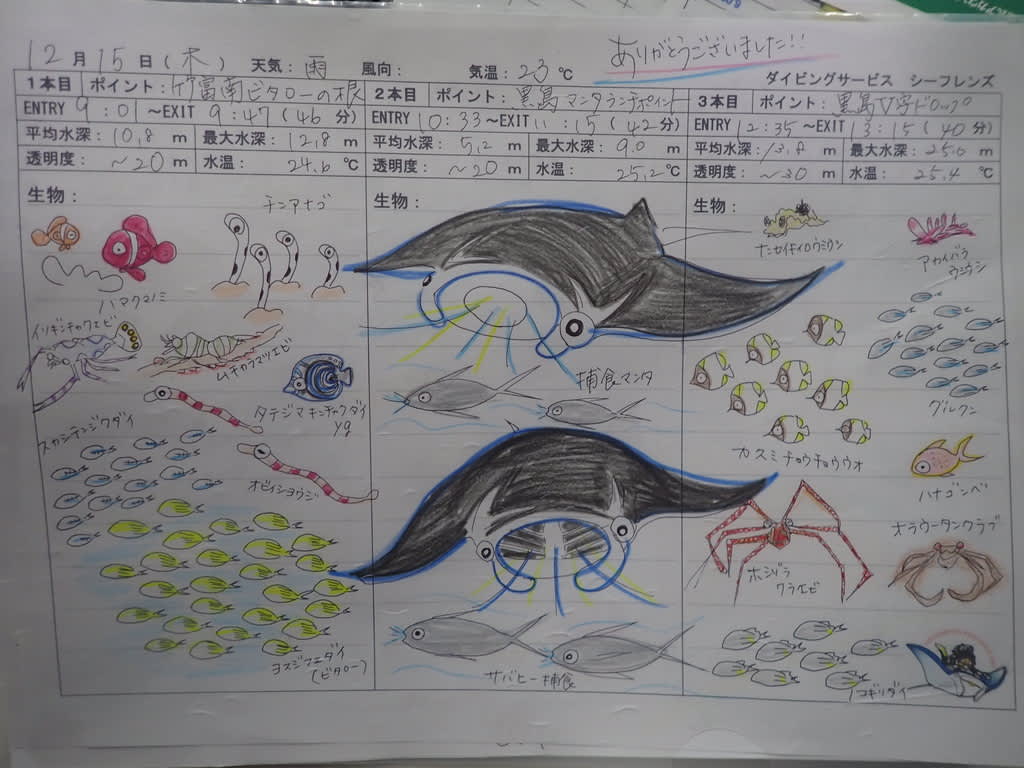 ありがとうございました!!
12月15日(木) 天気:雨 風向: 気温:23℃
ダイビングサービス シーフレンズ
1本目 ポイント:竹富南ビタローの根
ENTRY 9:01~EXIT 9:47(46分)
平均水深:10.8m 最大水深:12.8m
透明度:~20m 水温:24.6℃
生物:
チンアナゴ
ハマクマノミ
イソギンチャクエビ
ムチカラマツエビ
タテジマキンチャクダイ
yg
スカシテンジクダイ
オビイシヨウジ
ヨスジフエダイ
(ビタロー)
2本目 ポイント:黒島マンタランチポイント
ENTRY 10:33~EXIT 11:15(42分)
平均水深:5.2m 最大水深:9.0m
透明度:~20m 水温:25.2℃
生物:
捕食マンタ
サバヒー捕食
3本目 ポイント:黒島V字ドロップ
ENTRY 12:35~EXIT 13:15(40分)
平均水深:13.8m 最大水深:25.0m
透明度:~30m 水温:25.4℃
生物:
アカイバラ
ウミウシ
グルクン
カスミチョウチョウウオ
ハナゴンベ
オラウータンクラブ
ホシゾラ
ワラエビ
ノコギリダイ